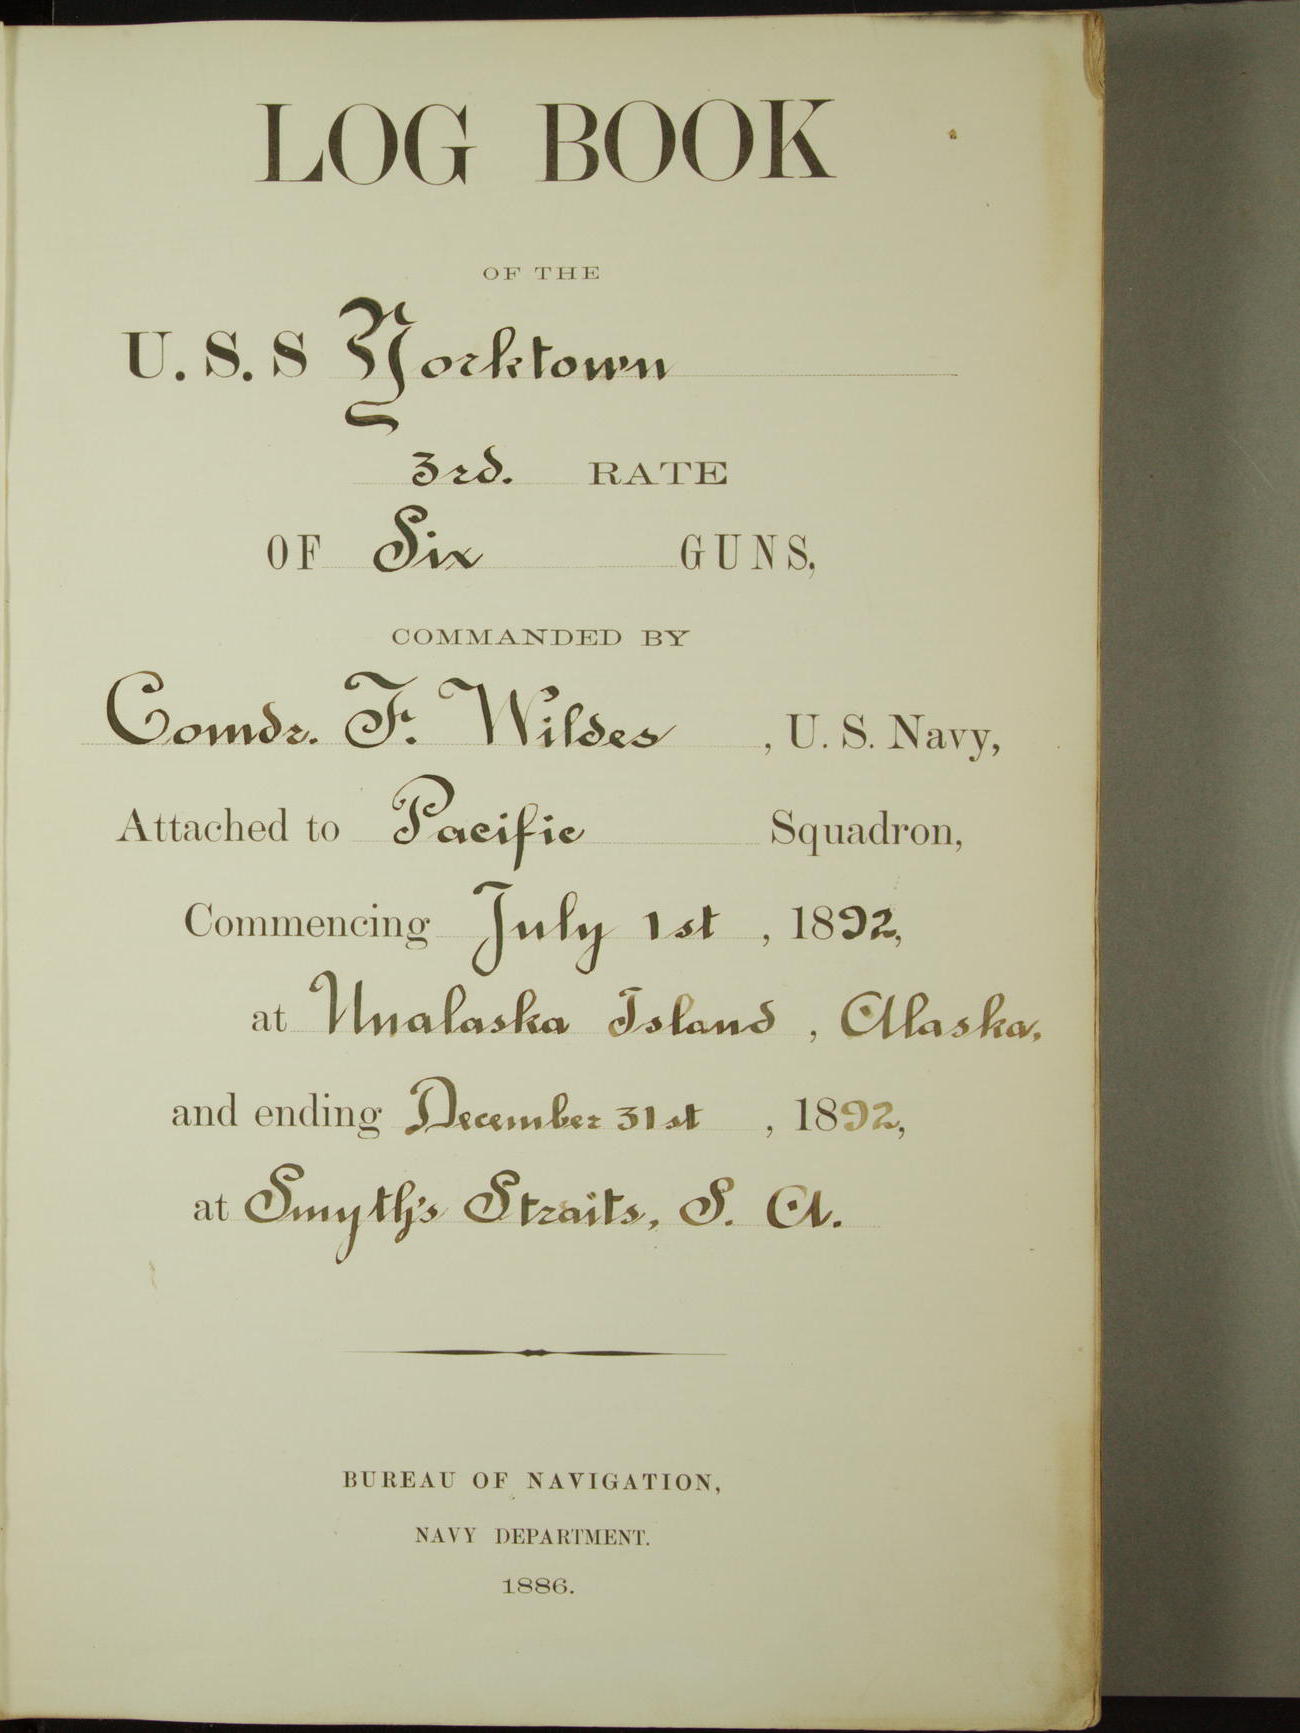 LOG BOOK
OF THE
U. S. S Yorktown
3rd. RATE
OF Six GUNS,
COMMANDED BY
Comdr. F. Wildes , U. S. Navy,
Attached to Pacific Squadron,
Commencing July 1st , 1892,
at Unalaska Island , Alaska.
and ending December 31st , 1892,
at Smyth's Straits, S. A.
BUREAU OF NAVIGATION,
NAVY DEPARTMENT.
1886.